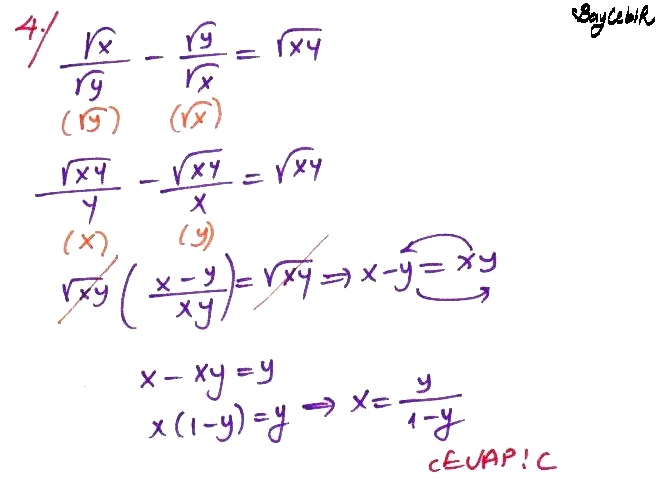 BayCebiR
4./ √x/√y − √y/√x = √xy
(√y) (√x)
√xy/y − √xy/x = √xy
(x) (y)
√xy ( x−y/xy ) = √xy ⇒ x−y = xy
x − xy = y
x(1−y) = y ⇒ x = y/1−y
CEVAP: C